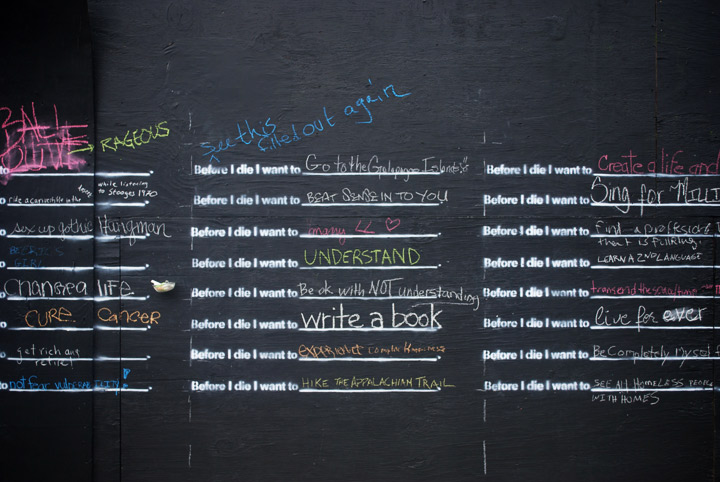 RAGEOUS
while listening
to Stooges 1970
ride a convertible in the
sex up gothic Hangman
GIRL
Change a LIFE
CURE CANCER
get rich and
retire!
not fear vulnerability!
see this filled out again
Before I die I want to Go to the Galapagos Islands!!
Before I die I want to BEAT SENSE IN TO YOU
Before I die I want to marry
Before I die I want to UNDERSTAND
Before I die I want to Be ok with NOT understanding
Before I die I want to write a book
Before I die I want to experience complete Happiness
Before I die I want to HIKE THE APPALACHIAN TRAIL
Before I die I want to Create a life and
Before I die I want to Sing for MILLI
Before I die I want to find a profession
that is fulfilling.
Before I die I want to LEARN A 2ND LANGUAGE
Before I die I want to transcend the
Before I die I want to live for ever
Before I die I want to Be Completely myself
Before I die I want to SEE ALL HOMELESS PEOPLE
WITH HOMES